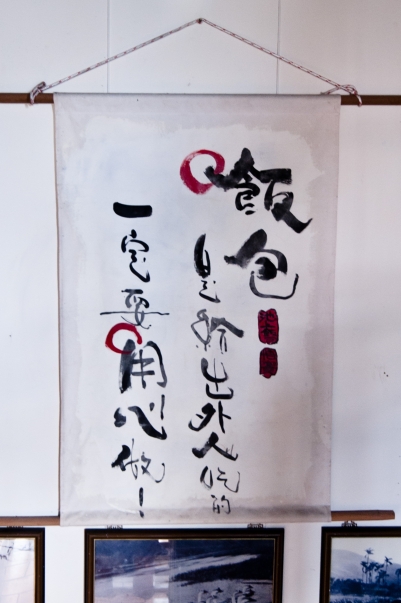 飯包
是給出外人吃的
一定要用心做！